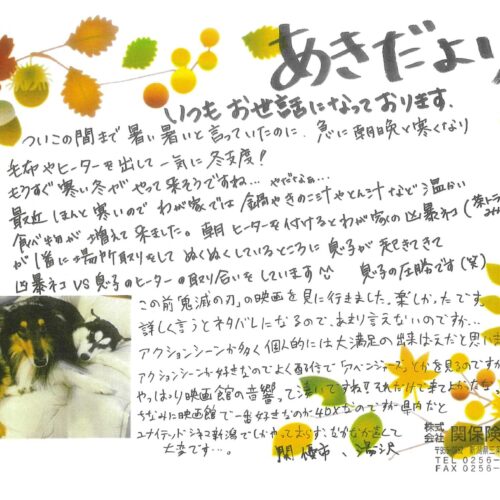 あきだより
いつもお世話になっております.
ついこの間まで暑い暑いと言っていたのに、急に朝晩と寒くなり
毛布やヒーターを出して一気に冬支度!
もうすぐ寒い冬がやって来そうですね… やだなぁ…
最近ほんと寒いのでわが家では鍋やきのこ汁やとん汁など温かい
食べ物が増えて来ました。朝ヒーターを付けるとわが家の凶暴ネコ(茶トラ
が1番に場所取りをしてぬくぬくしているところに息子が起きてきて
凶暴ネコVS息子のヒーターの取り合いをしています 息子の圧勝です(笑)
この前「鬼滅の刃」の映画を見に行きました。楽しかったです
詳しく言うとネタバレになるので、あまり言えないのですが…
アクションシーンが多く個人的には大満足の出来ばえだと思いま
アクションシーンが好きなのでよく配信で「アベンジャーズ」とかを見るのですが
やっぱり映画館の音響って凄いですね!!それだけで来てよかったな。
ちなみに映画館で一番好きなのが4DXなのですが県内だと
ユナイテッドシネマ新潟でしかやっておらず、なかなか遠くて
大変です…。 関 優市、湯沢
株式会社 関保険
新潟県三
TEL 0256-
FAX 0256-